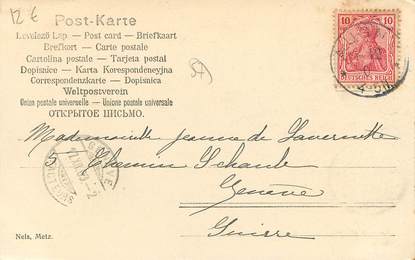 12 €
Post-Karte
Levelező Lap — Post card — Briefkaart
Brefkort — Carte postale
Cartolina postale — Tarjeta postal
Dopisnice — Karta Korespondencyjna
Correspondenzkarte — Dopisnica
Weltpostverein
Union postale universelle — Unione postale universale
ОТКРЫТОЕ ПИСЬМО.
10 10
DEUTSCHES REICH
Mademoiselle Jeanne de
5 Chemin
Genève
Suisse
GENÈVE
Nels, Metz.